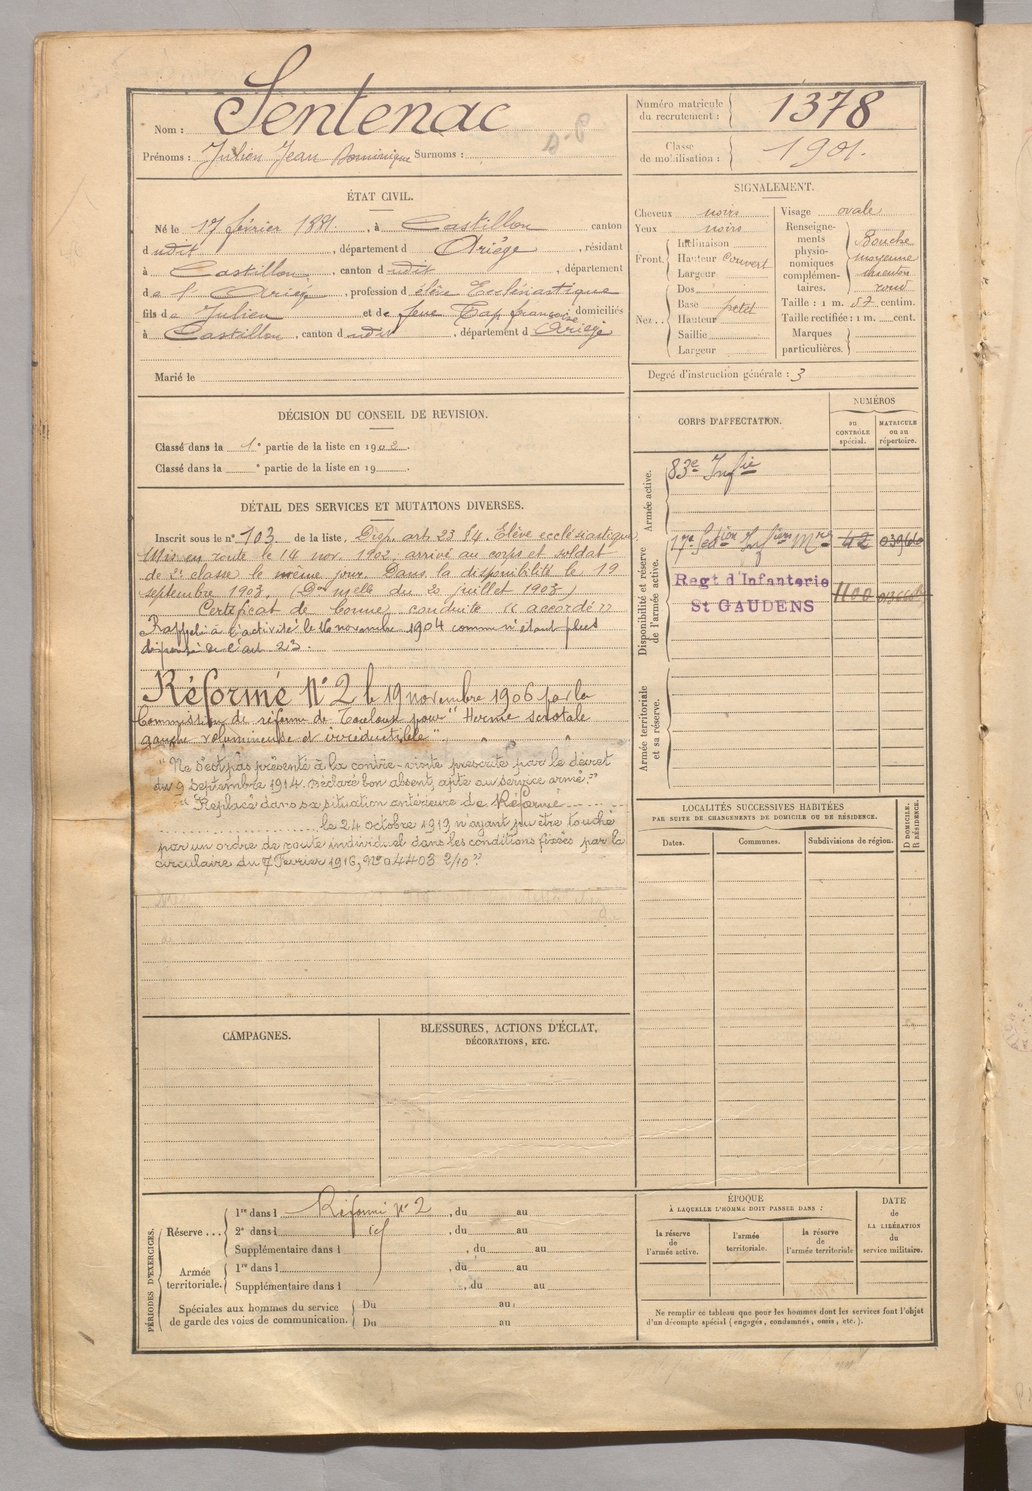 Nom : Sentenac
Prénoms : Julien Jean Dominique Surnoms :
Numéro matricule du recrutement : 1378
Classe de mobilisation : 1901.
ÉTAT CIVIL.
Né le 17 février 1881, à Castillon canton
d udit, département d Ariège, résidant
à Castillon, canton d udit, département
de l'Ariège, profession d élève Ecclésiastique
fils de Julien et de feue Cap françoise domiciliés
à Castillon, canton d udit, département d Ariège
Marié le
SIGNALEMENT.
Cheveux noirs
Yeux noirs
Front. Inclinaison
Hauteur Couvert
Largeur
Nez .. Dos
Base petit
Hauteur
Saillie
Largeur
Visage ovale
Renseignements physionomiques complémentaires. Bouche moyenne menton rond
Taille : 1 m. 57 centim.
Taille rectifiée : 1 m. cent.
Marques particulières.
Degré d'instruction générale : 3
DÉCISION DU CONSEIL DE REVISION.
Classé dans la 1e partie de la liste en 1902
Classé dans la e partie de la liste en 19
DÉTAIL DES SERVICES ET MUTATIONS DIVERSES.
Inscrit sous le n° 103 de la liste, Disp. art. 23 §4. Elève ecclésiastique
Mis en route le 14 nov. 1902, arrivé au corps et soldat
de 2e classe le même jour. Dans la disponibilité le 19
septembre 1903, ( du 20 juillet 1903)
Certificat de bonne conduite « accordé »
Rappelé à l'activité le 16 novembre 1904 comme n'étant plus
dispensé de l'art. 23.
Réformé N° 2 le 19 novembre 1906 par la
Commission de réforme de Toulouse pour " Hernie scrotale
gauche volumineuse et irréductible"
"Ne s'est pas présenté à la contre-visite prescrite par le décret
du 9 septembre 1914. Déclaré bon absent, apte au service armé."
"Replacé dans sa situation antérieure de Réformé
le 24 octobre 1919, n'ayant pu être touché
par un ordre de route individuel dans les conditions fixées par la
circulaire du 7 Février 1916, N° 04403 2/10"
CORPS D'AFFECTATION.
NUMÉROS
au CONTRÔLE spécial.
MATRICULE ou au répertoire.
Armée active.
83e Inf ie
Disponibilité et réserve de l'armée active.
17e Section Inf iers Mres 42
Regt d'Infanterie
St GAUDENS 1100
Armée territoriale et sa réserve.
LOCALITÉS SUCCESSIVES HABITÉES
PAR SUITE DE CHANGEMENTS DE DOMICILE OU DE RÉSIDENCE.
D DOMICILE. R RÉSIDENCE.
Dates. Communes. Subdivisions de région.
CAMPAGNES.
BLESSURES, ACTIONS D'ÉCLAT,
DÉCORATIONS, ETC.
PÉRIODES D'EXERCICES.
Réserve ... 1re dans l Réformé n° 2, du au
2e dans l, du au
Supplémentaire dans l, du au
Armée territoriale. 1re dans l, du au
Supplémentaire dans l, du au
Spéciales aux hommes du service
de garde des voies de communication. Du au
Du au
ÉPOQUE
À LAQUELLE L'HOMME DOIT PASSER DANS :
la réserve de l'armée active.
l'armée territoriale.
la réserve de l'armée territoriale
DATE de LA LIBÉRATION du service militaire.
Ne remplir ce tableau que pour les hommes dont les services font l'objet
d'un décompte spécial (engagés, condamnés, omis, etc.).